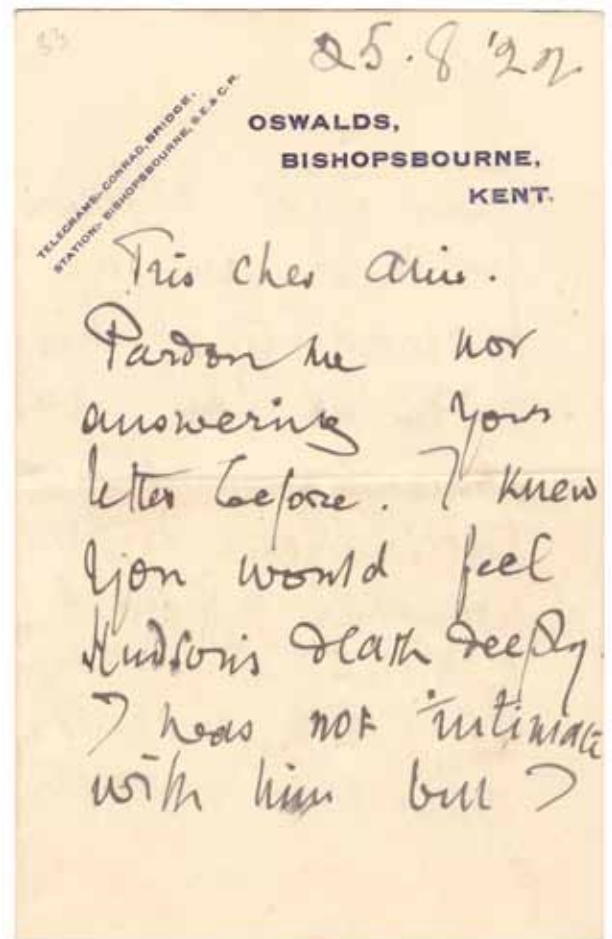 33
25.8'22
TELEGRAMS:- CONRAD, BRIDGE.
STATION:- BISHOPSBOURNE, S.E.& C.R.
OSWALDS,
BISHOPSBOURNE,
KENT.
Très cher Ami.
Pardon me not
answering your
letter before. I knew
you would feel
Hudson's death deeply.
I was not intimate
with him but I